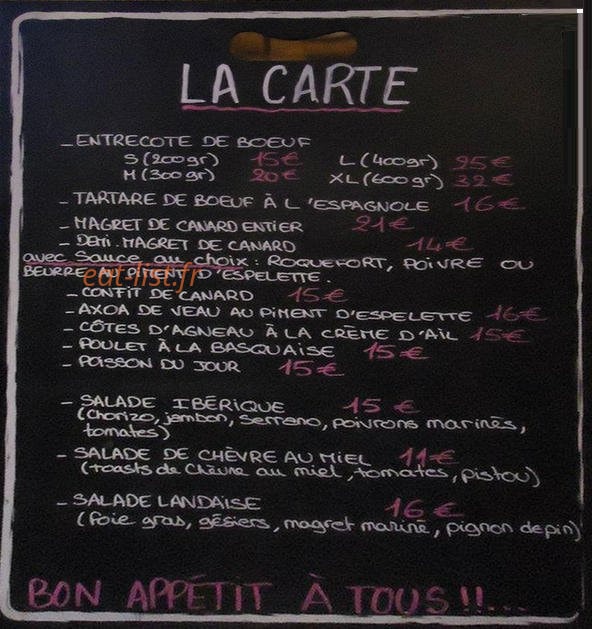 LA CARTE
- ENTRECOTE DE BOEUF
S (200gr) 15€ L (400gr) 25€
M (300gr) 20€ XL (600gr) 32€
- TARTARE DE BOEUF À L'ESPAGNOLE 16€
- MAGRET DE CANARD ENTIER 21€
- DEMI.MAGRET DE CANARD 14€
avec sauce au choix : ROQUEFORT, POIVRE OU
BEURRE AU PIMENT D'ESPELETTE.
eat-list.fr
- CONFIT DE CANARD 15€
- AXOA DE VEAU AU PIMENT D'ESPELETTE 16€
- CÔTES D'AGNEAU À LA CRÈME D'AIL 15€
- POULET À LA BASQUAISE 15€
- POISSON DU JOUR 15€
- SALADE IBÉRIQUE 15€
(chorizo, jambon, serrano, poivrons marinés,
tomates)
- SALADE DE CHÈVRE AU MIEL 11€
(toasts de chèvre au miel, tomates, pistou)
- SALADE LANDAISE 16€
(foie gras, gésiers, magret mariné, pignon de pin)
BON APPÉTIT À TOUS!!...